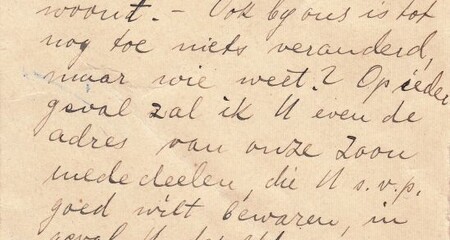 woont. – Ook by ons is tot
nog toe niets veranderd,
maar wie weet? Op ieder
geval zal ik U even de
adres van onze zoon
mededeelen, die U s.v.p.
goed wilt bewaren, in
geval U